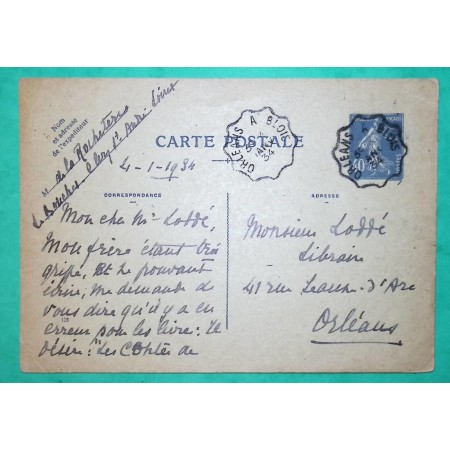 Nom
et adresse
de l'expéditeur
M. de la Rocheterie
Cléry St André Loiret
CARTE POSTALE
ORLEANS A BLOIS
ORLEANS A BLOIS
4-1-1934
CORRESPONDANCE
ADRESSE
Mon cher Mr Loddé,
Mon frère étant très
grippé, et ne pouvant
écrire, me demande de
vous dire qu'il y a eu
erreur pour les livres: Il
désire: "Les Contes de
Monsieur Loddé
Libraire
41 rue Jeanne-d'Arc
Orléans